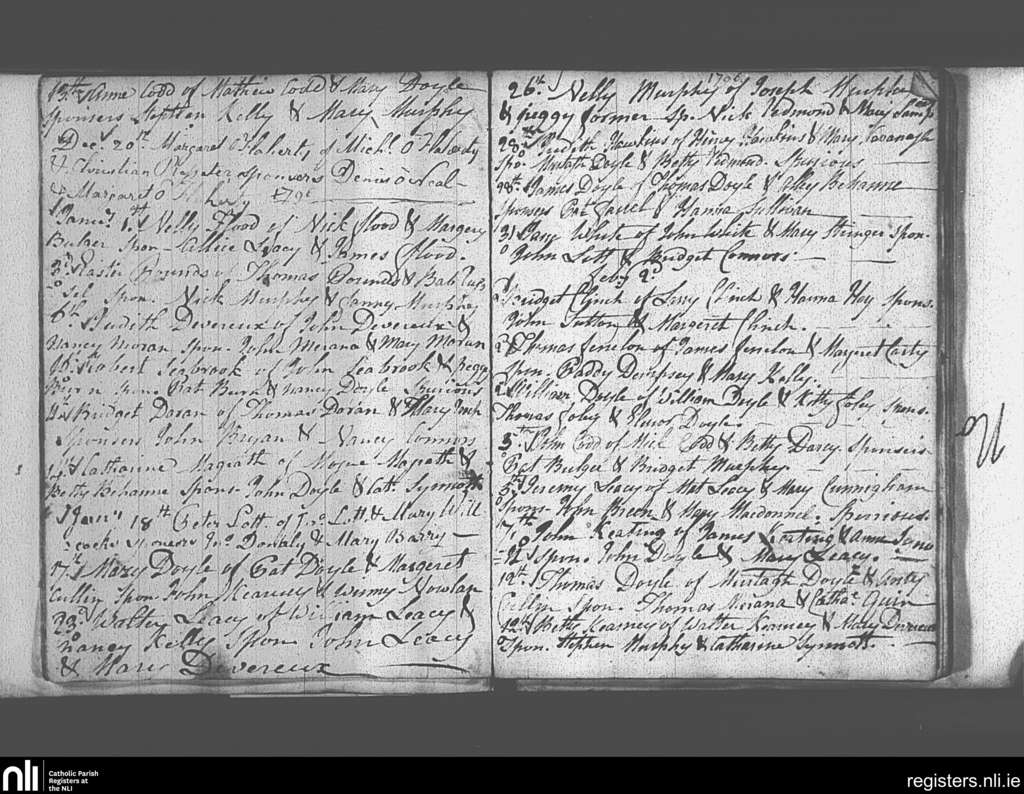 13th Anne Codd of Mathew Codd & Mary Doyle
sponsers Stephen Kelly & Mary Murphy
Decr 20th Margaret O Flaherty of Michl O Flaherty
& Christian sponsers Denis O Neal
& Margaret O
Janry 1st Nelly Flood of Nick Flood & Margery
Spon Leacy & James Flood.
3rd of Thomas &
Spon. Nick Murphy & Fanny Murphy
6th Judith Devereux of John Devereux &
Nancy Moran Spon. John & Mary Moran
Robert Seabrook of John Seabrook & Peggy
Pat & Nancy Doyle Spurious
Bridget Doran of Thomas Doran & Mary
Sponsers John Bryan & Nancy Connors
Catharine Magrath of Moyne Magrath &
Betty Behanne Spons. John Doyle & Cath. Synnott
Janry 18th Peter Lott of Jno Lott & Mary Will
cocks sponsers Jno & Mary Barry
17th Mary Doyle of Pat Doyle & Margaret
Cullin Spon. John Kearney & Winny Nowlan
23d Walter Leacy of William Leacy &
Nancy Kelly Spon John Leacy
& Mary Devereux
1796
26th Nelly Murphy of Joseph Murphy
& peggy former Sp. Nick Redmond & Mary
28th Judith Hawkins of Henry Hawkins & Mary Kavanagh
Spo. Doyle & Betty Redmond. Spurious
28th James Doyle of Thomas Doyle & Behanne
Sponsers Pat & Hanna Sullivan
31 White of John White & Mary Stringer Spon.
John Lett & Bridget Connors
Feby 2d
Bridget Clinch of Clinch & Hanna Hay spons.
John Sutton & Margaret Clinch.
Thomas Fenelon of James Fenelon & Margaret Carty
Spon. Paddy Dempsey & Mary Kelly.
William Doyle of William Doyle & Kitty Foley Spons.
Thomas Foley & Doyle.
3rd John Codd of Codd & Betty Darcy Sponsers
Pat Bulger & Bridget Murphy.
5th Jeremy Leacy of Mat Leacy & Mary Cunnigham
Spons. John Breen & Mary Macdonnel. Spurious
7th John Keating of James Keating & Anne
Spon. John Doyle & Mary Leacy.
12th Thomas Doyle of Murtagh Doyle &
Cullin Spon. Thomas & Catha. Quin
12th Betty Kearney of Walter Kearney & Mary Devereux
Spon. Stephen Murphy & Catharine Synnott.
nli
Catholic Parish
Registers at
the NLI
registers.nli.ie